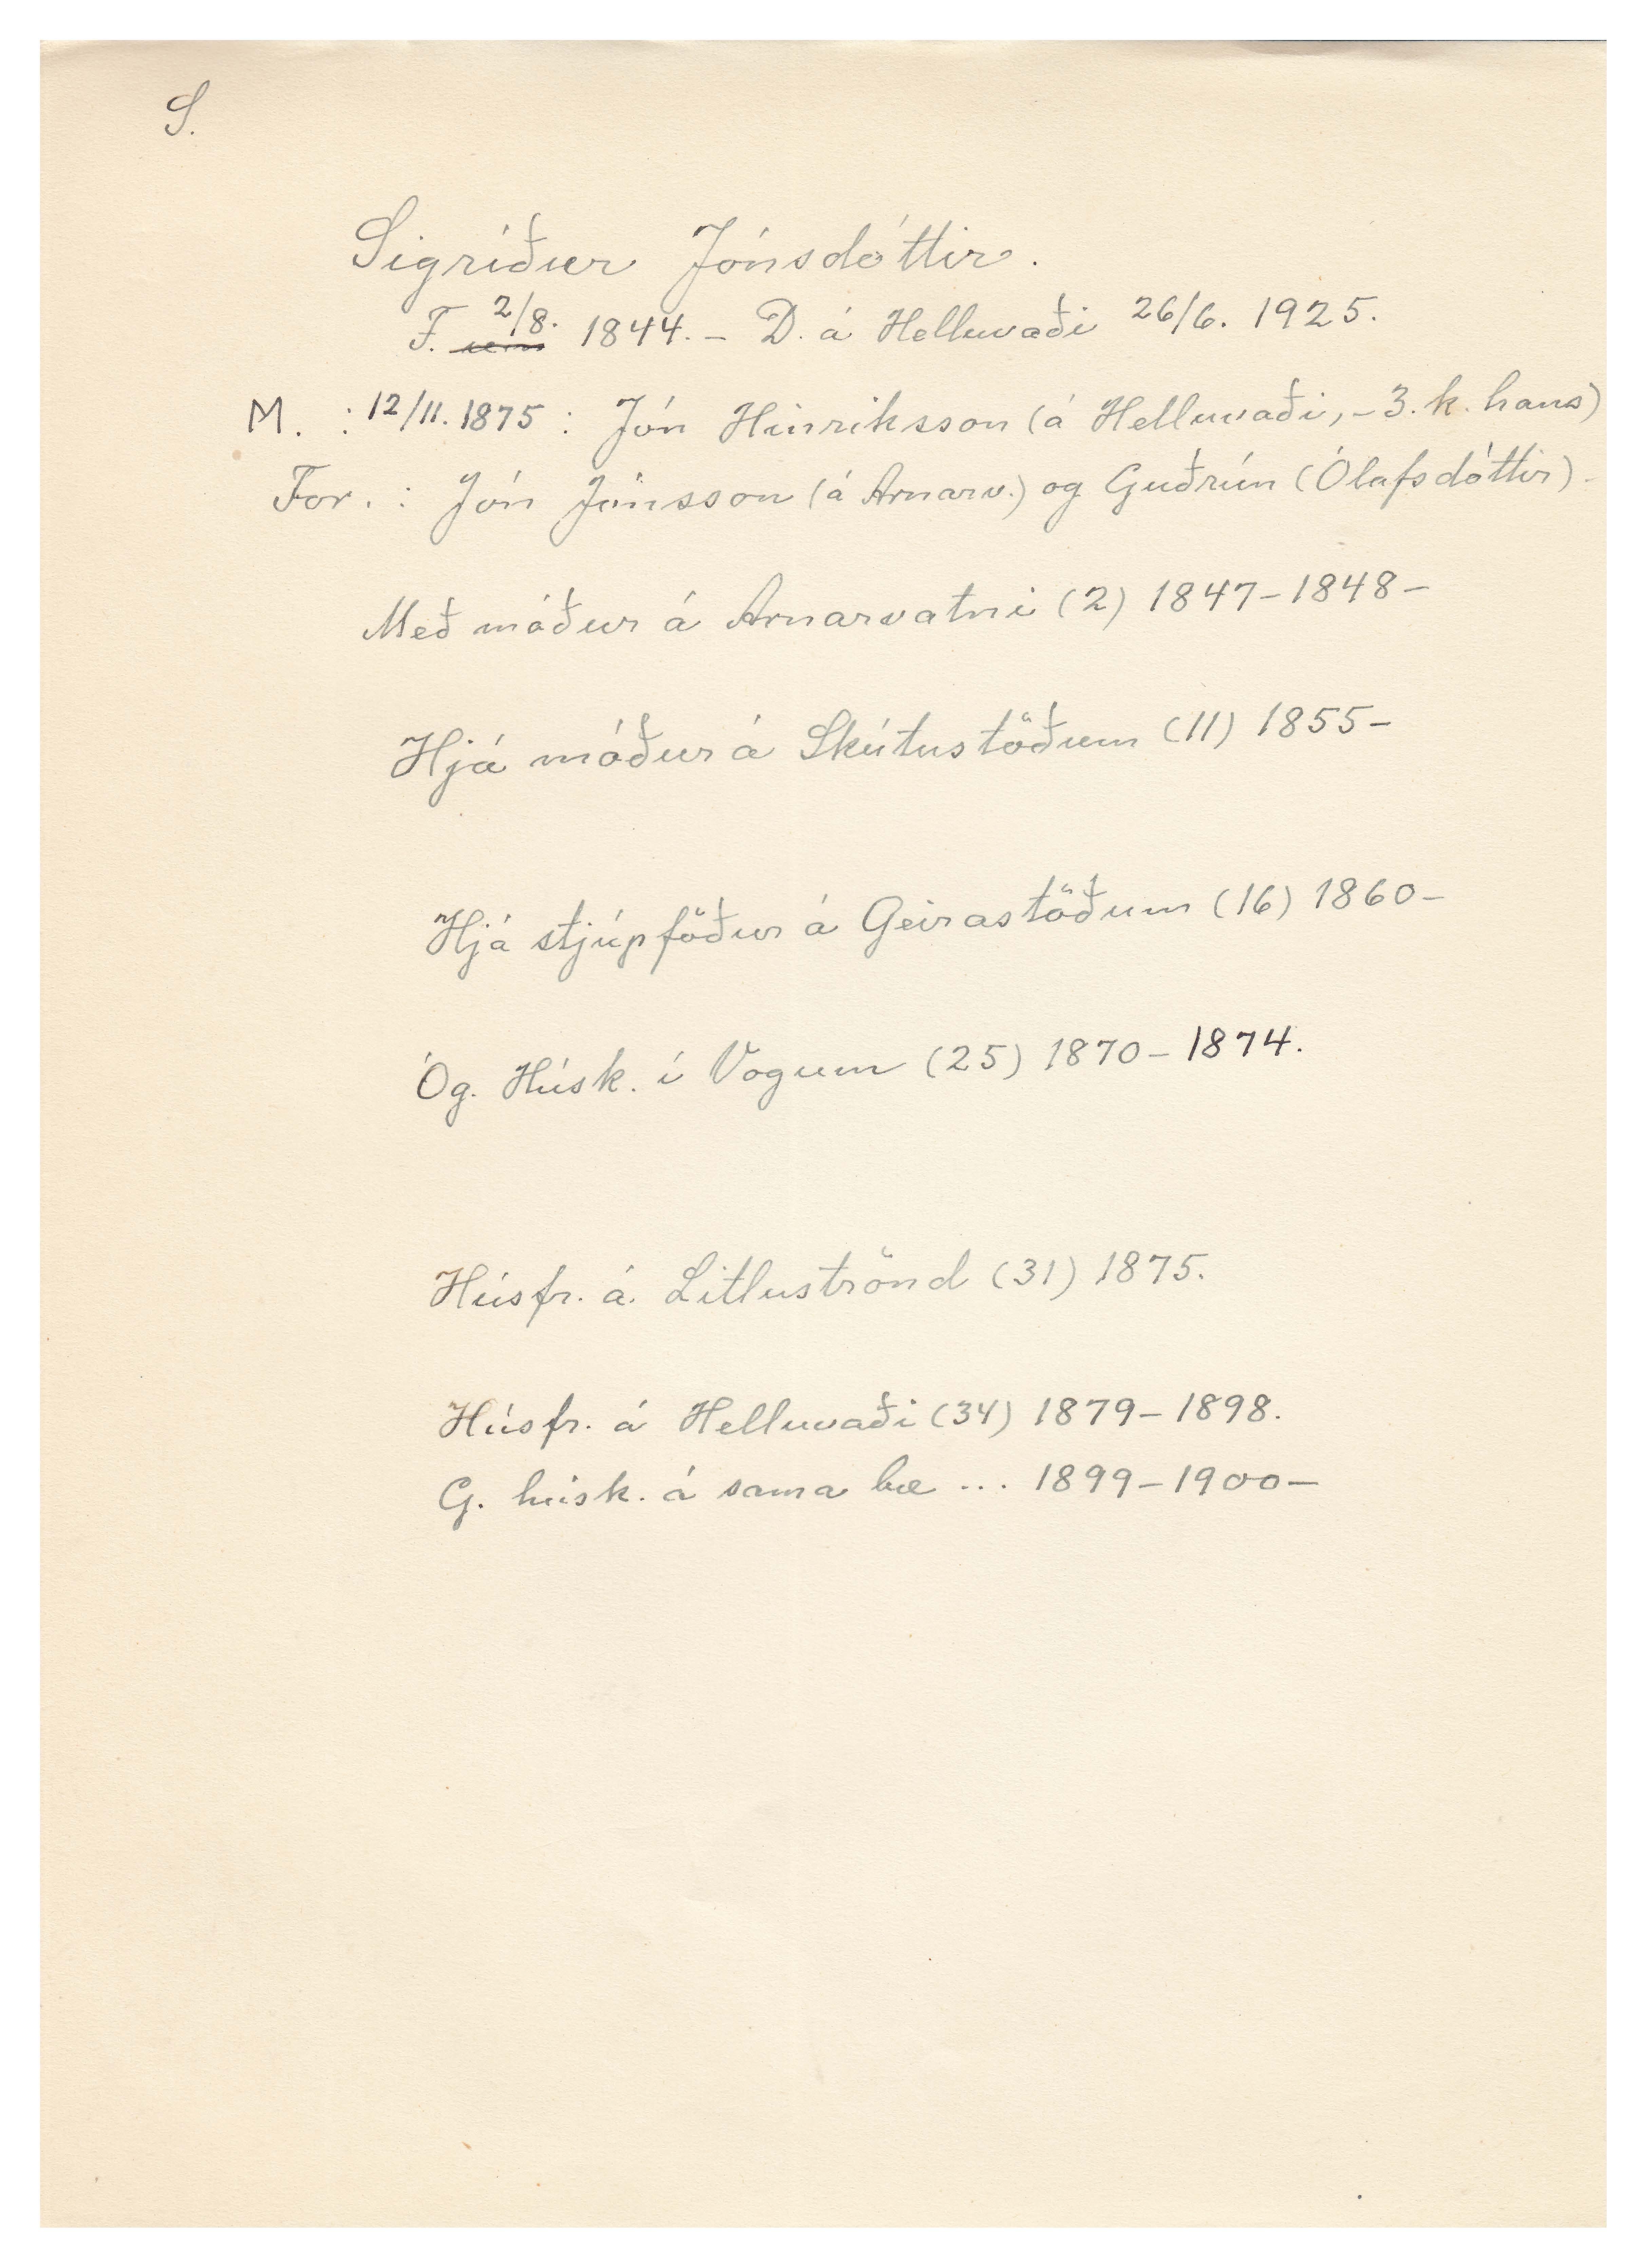 S.
Sigríður Jónsdóttir.
F. 2/8. 1844. - D. á Helluvaði 26/6. 1925.
M. : 12/11. 1875 : Jón Hinriksson (á Helluvaði, - 3. k. hans)
For. : Jón Jónsson (á Arnarv.) og Guðrún (Ólafsdóttir).
Með móður á Arnarvatni (2) 1847-1848-
Hjá móður á Skútustöðum (11) 1855-
Hjá stjúpföður á Geirastöðum (16) 1860-
Óg. Húsk. í Vogum (25) 1870-1874.
Húsfr. á. Litluströnd (31) 1875.
Húsfr. á Helluvaði (34) 1879-1898.
G. húsk. á sama bæ ... 1899-1900-